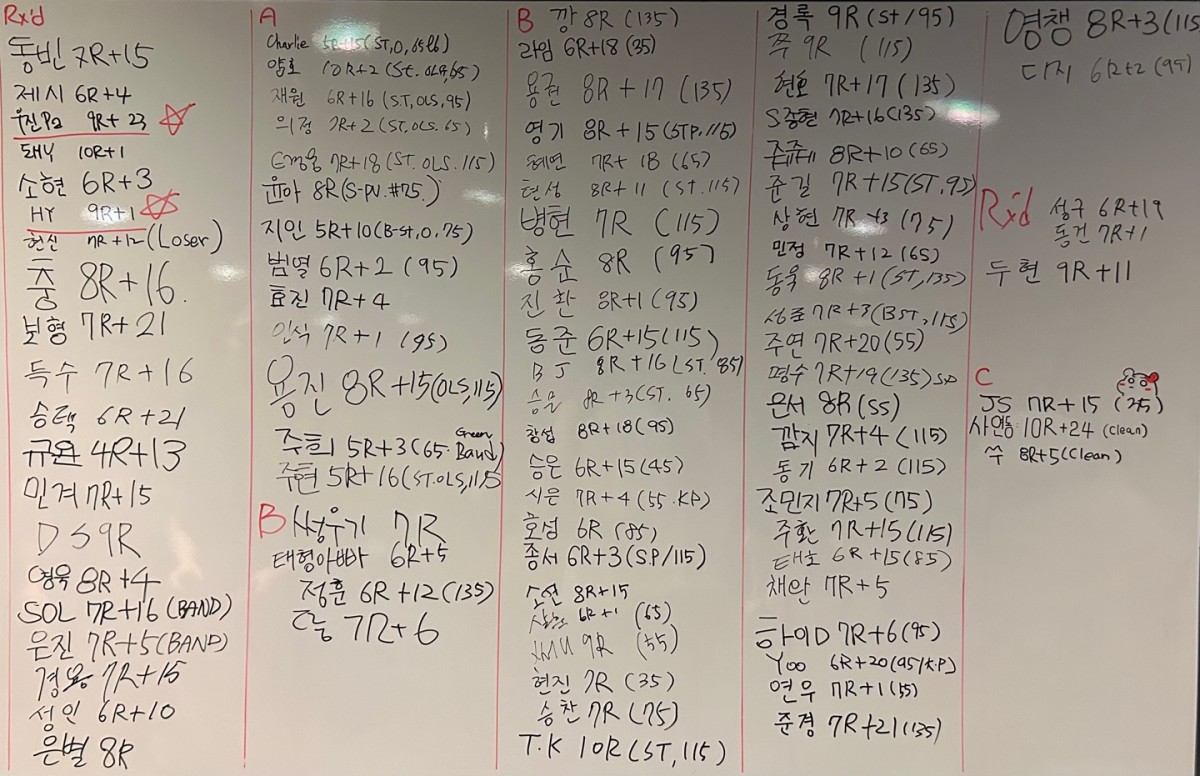 Rx'd
동빈 7R+15
제시 6R+4
우진Pa 9R+23
돼 10R+1
소현 6R+3
HY 9R+1
헌신 7R+12(Loser)
중 8R+16.
보형 7R+21
득수 7R+16
승택 6R+21
규완 4R+13
민겨 7R+15
DS 9R
영욱 8R+4
SOL 7R+16(BAND)
우진 7R+5(BAND)
경용 7R+15
성인 6R+10
은별 8R
A
Charlie 5R+15(ST,O,65lb)
양호 10R+2(St.OLS,65)
재원 6R+16(ST,OLS,95)
의정 7R+2(ST.OLS.65)
7R+18(ST.OLS.115)
윤아 8R(S-PU.#75.)
지인 5R+10(B-St,O,75)
범열 6R+2(95)
효진 7R+4
인식 7R+1 (95)
용진 8R+15(OLS,115)
주희 5R+3(65.Green Band)
주현 5R+16(ST.OLS,115
B 서우기 7R
태형아빠 6R+5
정훈 6R+12(135)
7R+6
B 깡 8R(135)
라임 6R+18(35)
용권 8R+17(135)
영기 8R+15(STP.115)
혜연 7R+18(65)
현성 8R+11(ST.115)
병현 7R(115)
홍순 8R(95)
진환 8R+1(95)
동준 6R+15(115)
BJ 8R+16(ST.85)
승율 8R+3(ST.65)
창섭 8R+18(95)
승은 6R+15(45)
시은 7R+4(55.KP)
호성 6R(85)
종서 6R+3(S.P/115)
소연 8R+15
6R+1 (65)
9R (55)
현진 7R(35)
승찬 7R(75)
T.K 10R(ST,115)
경록 9R(St/95)
쭈 9R (115)
현호 7R+17(135)
S종현 7R+16(135)
8R+10(65)
준길 7R+15(ST.95)
상현 7R+3(75)
민정 7R+12(65)
동욱 8R+1(ST,135)
성표 7R+3(BST,115)
주연 7R+20(55)
평수 7R+19(135)SP
은서 8R(55)
깜지 7R+4(115)
동기 6R+2(115)
조민지 7R+5(75)
주환 7R+15(115)
태호 6R+15(85)
채안 7R+5
하이D 7R+6(95)
Yoo 6R+20(95/K.P)
연우 7R+1(55)
준경 7R+21(135)
영챙 8R+3(115
디지 6R+2(95)
Rx'd 성구 6R+19
동건 7R+1
두현 9R+11
C
JS 7R+15(75)
사연동 10R+24(Clean)
쑤 8R+5(Clean)